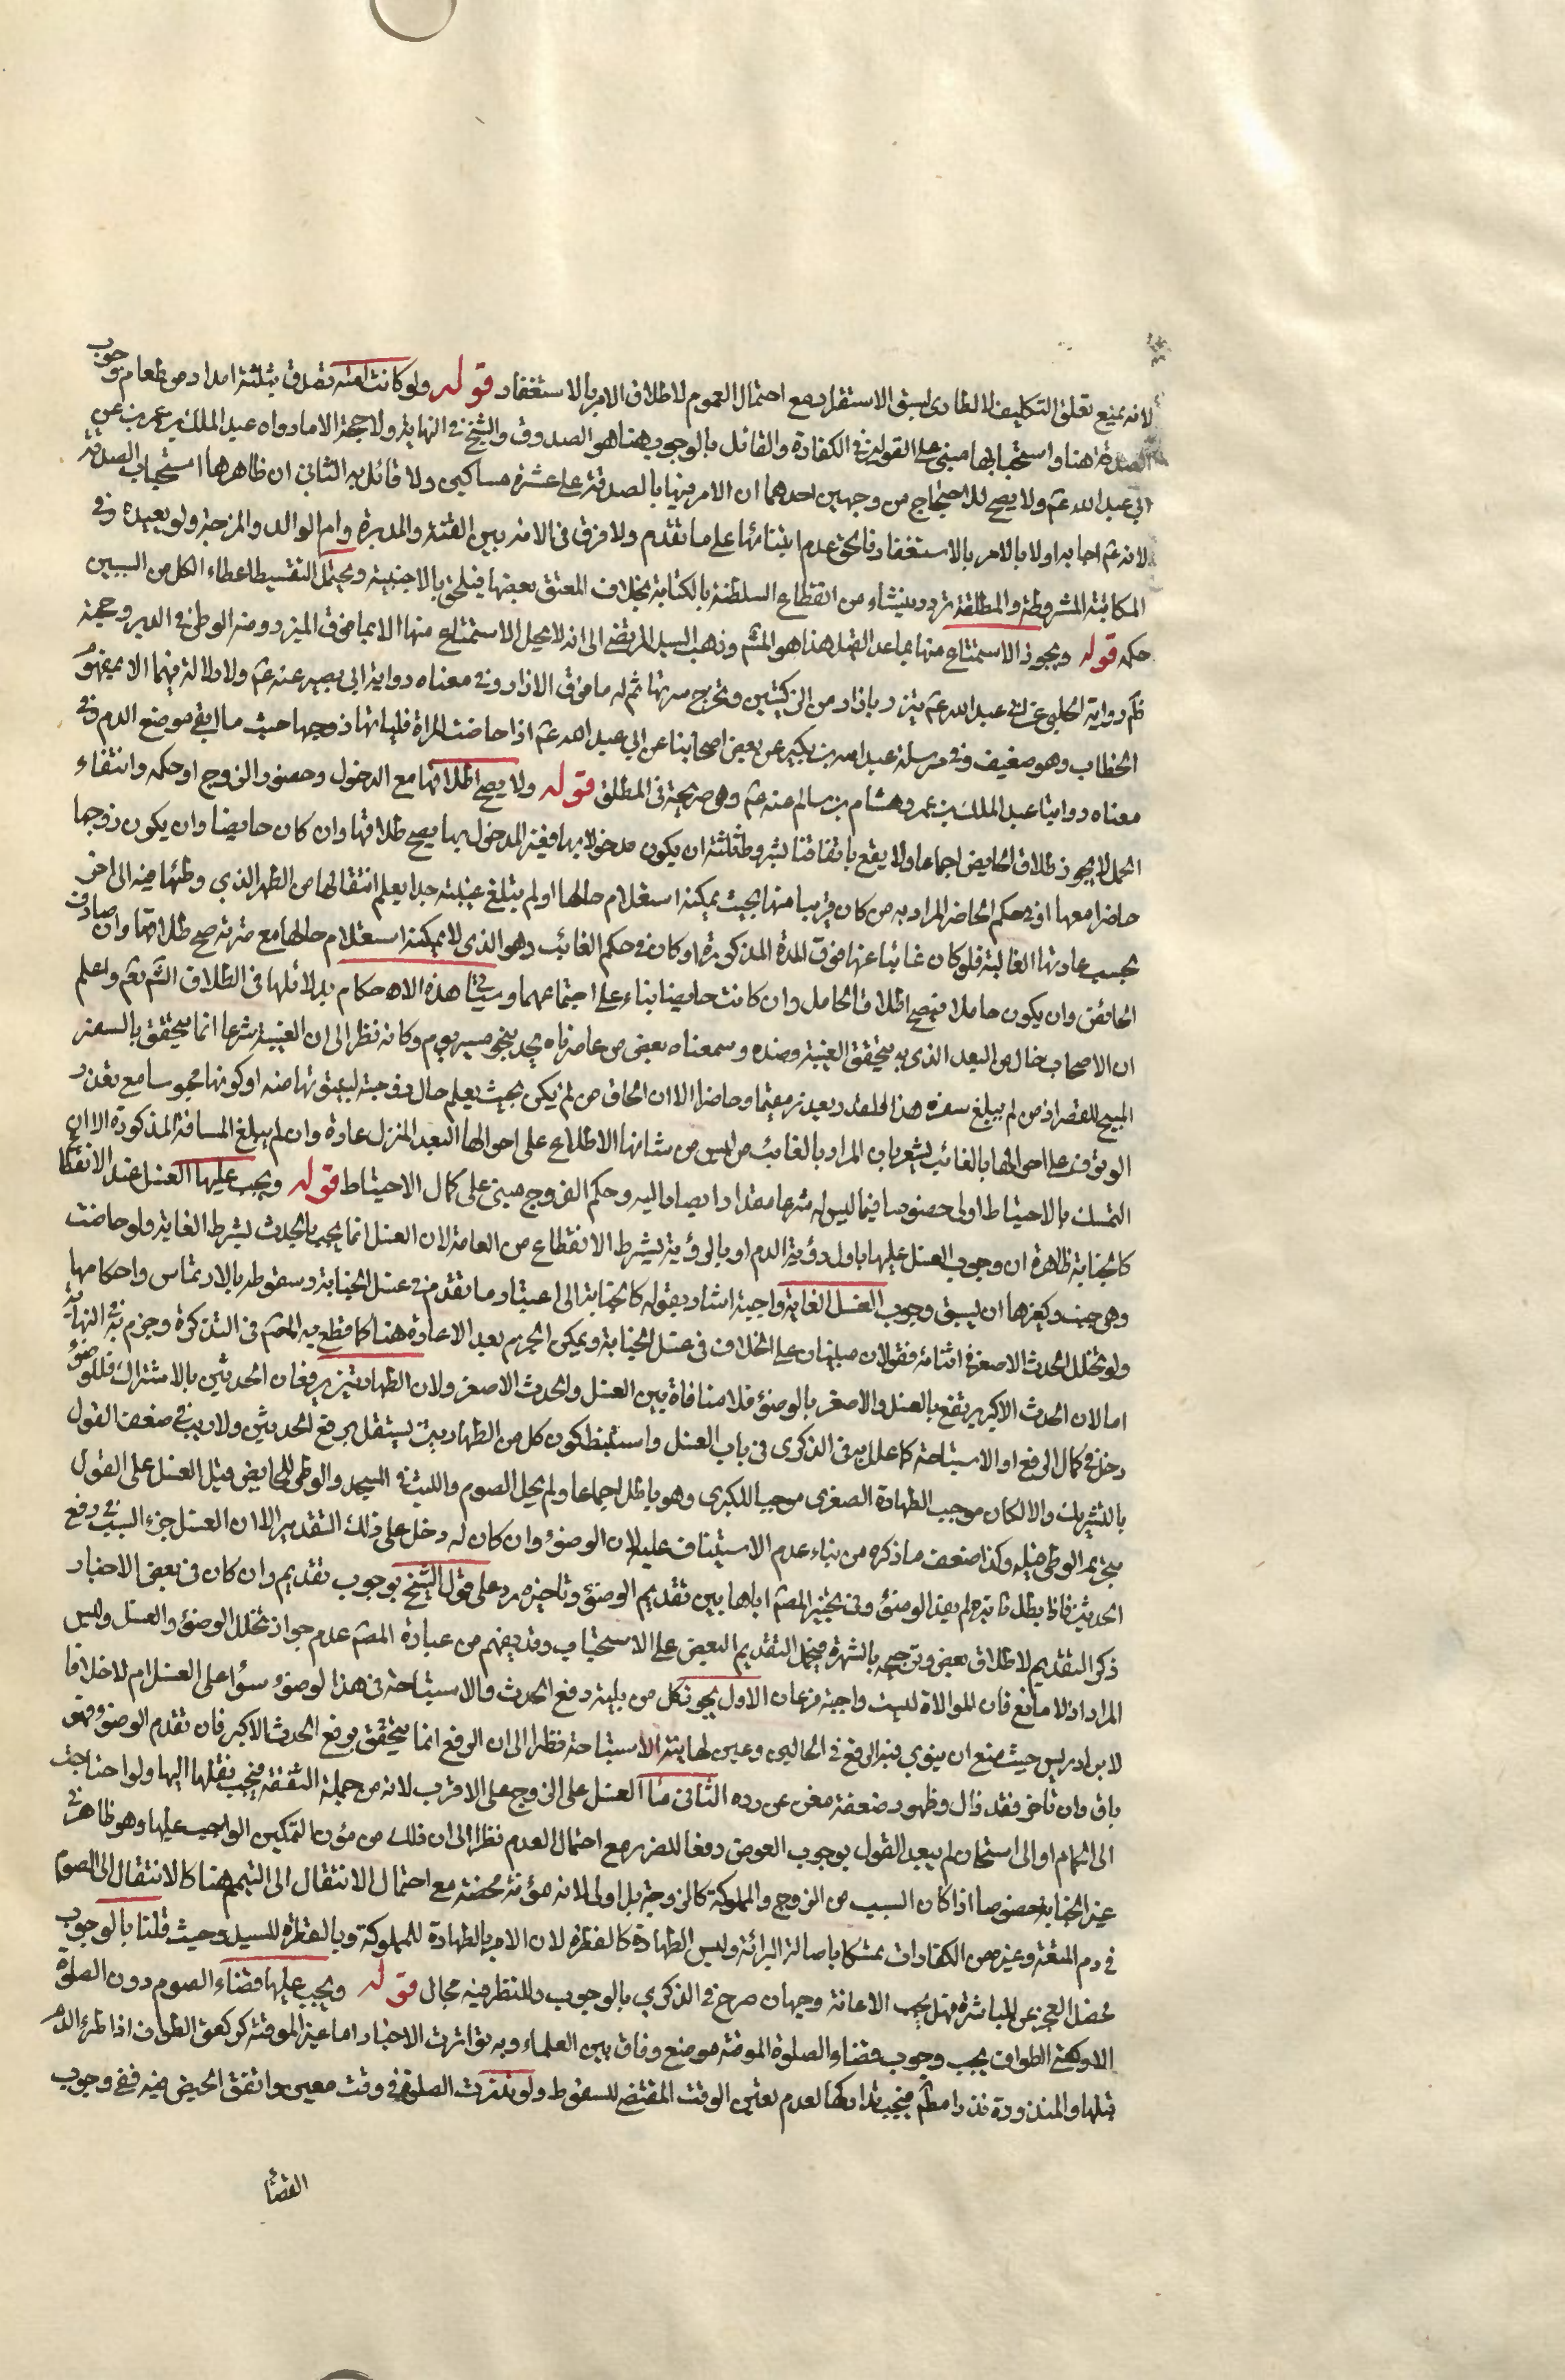 لانه يمنع تعلق التكليف لا الطارى لسبق الاستقرار مع احتمال العموم لاطلاق الامر بالاستغفار قوله ولو كانت امته تصدق بثلثة امداد من طعام وجوب
الصدقة هنا واستحبابها مبنى على القولين فى الكفارة والقائل بالوجوب هنا هو الصدوق والشيخ فى النهاية ولا حجة الا ما رواه عبد الملك بن عمر عن
ابى عبد الله عم ولا يصح للاحتجاج من وجهين احدهما ان الامر فيها بالصدقة على عشرة مساكين ولا قائل به الثانى ان ظاهرها استحباب الصدقة
لانه عم اجابه اولا بالامر بالاستغفار فالحق عدم ابتنائها على ما تقدم ولا فرق فى الامة بين القنة والمدبرة وام الوالد والمزوجة ولو بعيده وفى
المكاتبة المشروطة والمطلقة تردد ينشاء من انقطاع السلطنة بالكتابة بخلاف المعتق بعضها فيلحق بالاجنبية ويحتمل التقسيط اعطاء الكل من السببين
حكمه قوله ويجوز الاستمتاع منها بما عدا القبل هذا هو المشم وذهب السيد المرتضى الى انه لا يحل الاستمتاع منها الا بما فوق الميزر ومنه الوطئ فى الدبر وحجية
ظم رواية الحلبى عن ابى عبد الله عم تتزر بازار من الركبتين وتخرج سرتها ثم له ما فوق الازار وفى معناه رواية ابى بصير عنه عم ولا دلالة فيهما الا بمفهوم
الخطاب وهو ضعيف وفى مرسلة عبد الله بن بكير عن بعض اصحابنا عن ابى عبد الله عم اذا حاضت المراة فلياتها زوجها حيث ما اتقى موضع الدم وفى
معناه روايتا عبد الملك بن عمر وهشام بن سالم عنه عم وهى صريحة فى المطلق قوله ولا يصح اطلاقها مع الدخول وحضور الزوج او حكمه وانتفاء
الحمل لا يجوز طلاق الحايض اجماعا ولا يقع باتفاقنا بشروط ثلثة ان يكون مدخولا بها فغير المدخول بها يصح طلاقها وان كان حايضا وان يكون زوجها
حاضرا معها او فى حكم الحاضر المراد به من كان قريبا منها بحيث يمكنه استعلام حالها او لم يبلغ غيبته حدا يعلم انتقالها من الطهر الذي وطئها فيه الى اخر
بحسب عادتها الغالبة فلو كان غائبا عنها فوق المدة المذكورة او كان فى حكم الغائب وهو الذى لا يمكنه استعلام حالها مع قربه صح طلاقها وان صادف
الحائض وان يكون حاملا فيصح اطلاق الحامل وان كانت حايضا بناء على اجتماعهما وسياتى هذه الاحكام بدلائلها فى الطلاق انشم تعم واعلم
ان الاصحاب خال من البعد الذى به يتحقق الغيبة وضده وسمعناه بعض من عاصرناه يحد بنحو مسير يوم وكانه نظر الى ان الغيبة شرعا انما يتحقق بالسفر
المبيح للقصر اذ من لم يبلغ سفره هذا القدر يعد مقيما وحاضرا الا ان الحاق من لم يكن بحيث يعلم حال زوجته لبيتوتها منه او كونها محبوسا مع تعذر
الوثوق على احوالها بالغائب يشعر بان المراد بالغائب من ليس من شانها الاطلاع على احوالها البعد المنزل عادة وان لم يبلغ المسافة المذكورة الا ان
التمسك بالاحتياط اولى خصوصا فيما ليس له شرعا مقدارا يصار اليه وحكم الفروج مبنى على كمال الاحتياط قوله ويجب عليها الغسل عند الانقطاع
كالجنابة ظاهره ان وجوب الغسل عليها باول رؤية الدم او بالرؤية بشرط الانقطاع من العامة لان الغسل انما يجب بالحدث بشرط الغاية ولو حاضت
وهى جنب ان يسبق وجوب الغسل الغاية واجبة اشار بقوله كالجنابة الى اعتبار ما تقدم فى غسل الجنابة وسقوطه بالارتماس واحكامها
ولو تخلل الحدث الاصغر فى اثنائه فقولان مبنيان على الخلاف فى غسل الجنابة ويمكن الجزم بعد الاعادة هنا كما قطع به المصم فى التذكرة وجزم به فى النهاية
اما لان الحدث الاكبر يرتفع بالغسل والاصغر بالوضؤ فلا منافاة بين الغسل والحدث الاصغر ولان الطهارتين يرفعان الحدثين بالاشتراك فللوضؤ
دخل فى كمال الرفع او الاستباحة كما علل به فى الذكرى فى باب الغسل واستنبط كون كل من الطهارتين يستقل برفع الحدثين ولا ريب فى ضعف القول
بالتشريك والا لكان موجب الطهارة الصغرى موجبا للكبرى وهو باطل اجماعا ولم يحل الصوم واللبث فى المسجد والوطى للحايض قبل الغسل على القول
بتحريم الوطى قبله وكذا ضعف ما ذكره من بناء عدم الاستيناف عليه لان الوضؤ وان كان له دخل على ذلك التقدير الا ان الغسل جزء السبب فى رفع
الحدث فاذا بطل تاثيره لم يفد الوضؤ وفى تخيير المصم اياها بين تقديم الوضؤ وتاخيره رد على قول الشيخ بوجوب تقديم وان كان فى بعض الاخبار
ذكر التقديم لاطلاق بعض وترجيحه بالشهرة فيحمل التقديم البعض على الاستحباب وقد يفهم من عبارة المصم عدم جواز تخلل الوضؤ والغسل وليس
المراد اذ لا مانع فان الموالاة ليست واجبة فرعان الاول يجوز كل من نية رفع الحدث والاستباحة فى هذا الوضؤ سؤا على الغسل ام لا خلافا
لابن ادريس حيث منع ان ينوي فيه الرفع فى الحالين وعين لها نية الاستباحة نظرا الى ان الرفع انما يتحقق برفع الحدث الاكبر فان تقدم الوضؤ فهو
باق وان تاخر فقد زال وظهور ضعفه مغن عن رده الثانى ماء الغسل على الزوج على الاقرب لانه من جملة النفقة فيجب نقلها اليها ولو احتاجت
الى الحمام او الى استحان لم يبعد القول بوجوب العوض دفعا للضرر مع احتمال العدم نظرا الى ان ذلك من مؤن التمكين الواجب عليها وهو ظاهر فى
غير الجنابة خصوصا اذا كان السبب من الزوج والمملوكة كالزوجة بل اولى لانه مؤنة محضة مع احتمال الانتقال الى التيمم هنا كالانتقال الى الصوم
فى دم المتعة وغير من الكفارات تمسكا باصالة البرائة وليس الطهارة كالفطرة لان الامر بالطهارة للمملوكة وبالفطرة للسيد وحيث قلنا بالوجوب
فحصل العجز عن المباشرة فهل يجب الاعانة وجهان صرح فى الذكري بالوجوب وللنظر فيه مجال قوله ويجب عليها قضاء الصوم دون الصلوة
الا ركعتى الطواف يجب وجوب قضاء الصلوة الموقتة موضع وفاق بين العلماء وبه تواترت الاخبار اما غير الموقتة كركعتى الطواف اذا طرء الدم
قبلها والمنذورة نذرا مطلم فيجب تداركها لعدم تعين الوقت المقتضى للسقوط ولو نذرت الصلوة فى وقت معين واتفق الحيض فيه ففى وجوب
القضاء